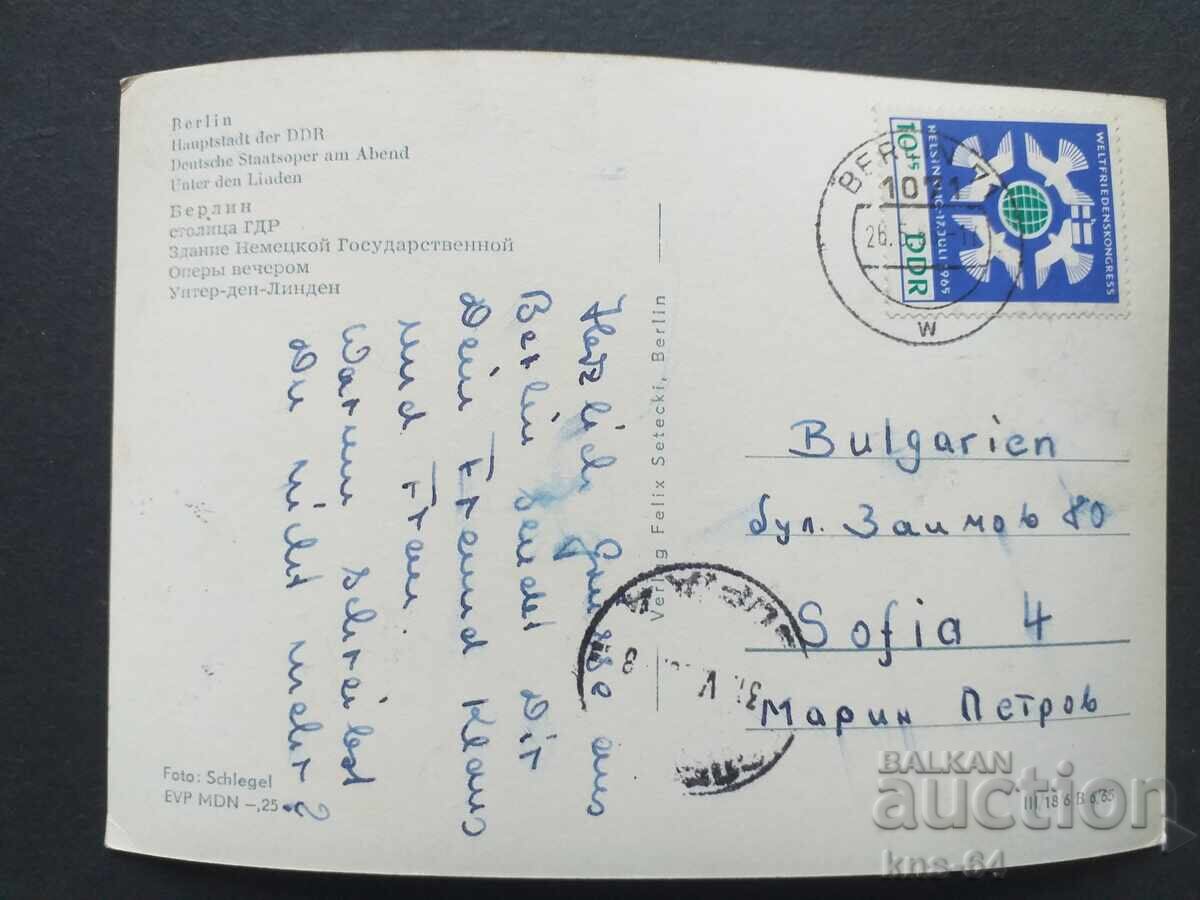 Berlin
Hauptstadt der DDR
Deutsche Staatsoper am Abend
Unter den Linden
Берлин
столица ГДР
Здание Немецкой Государственной
Оперы вечером
Унтер-ден-Линден
Herzlich Grüsse aus
Berlin sendet Dir
Dein Freund Klaus
und Frau.
Warum schreibst
Du nicht mehr?
Verlag Felix Setecki, Berlin
Foto: Schlegel
EVP MDN –,25
WELTFRIEDENSKONGRESS
HELSINKI 10.-17. JULI 1965
10+5 DDR
BERLIN 71
1071
26.5
w
31. V
8
Bulgarien
бул. Заимов 80
Sofia 4
Марин Петров
III/18 6 B 6/65
BALKAN
auction
kns-64